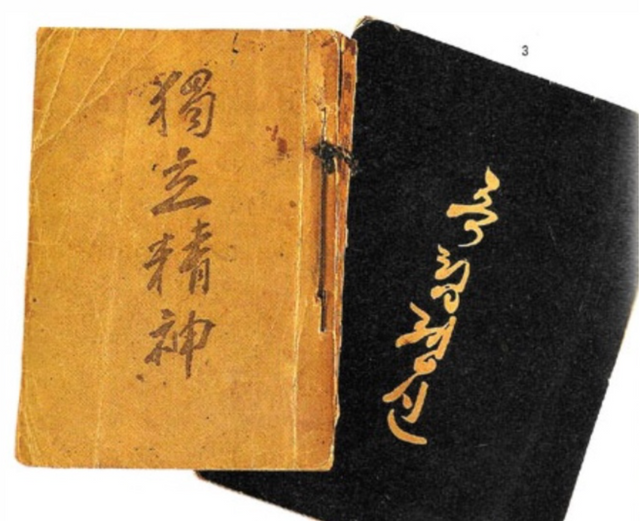 3
獨立精神
독립졍신